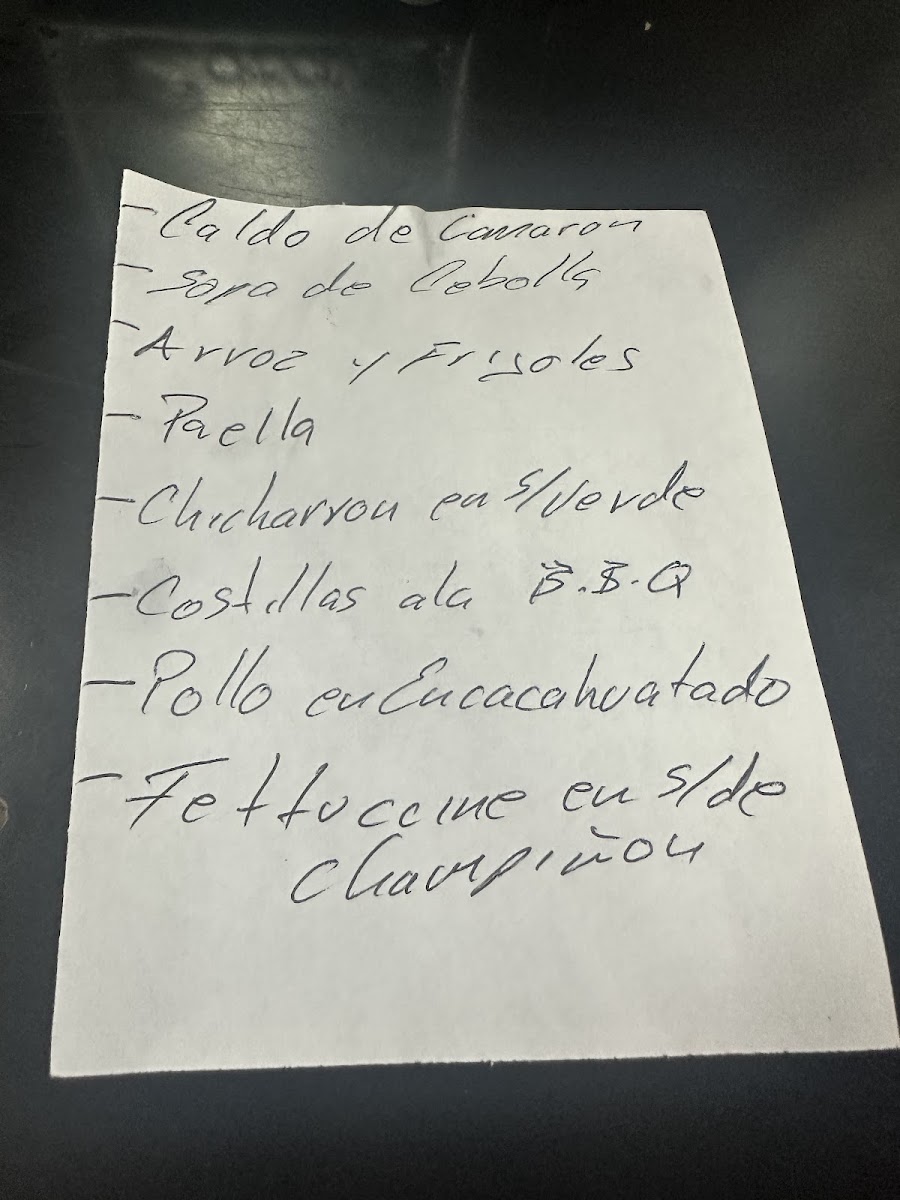 - Caldo de Camaron
- Sopa de Cebolla
- Arroz y Frijoles
- Paella
- Chicharron en s/verde
- Costillas ala B.B.Q
- Pollo en Encacahuatado
- Fettuccine en s/de
champiñon